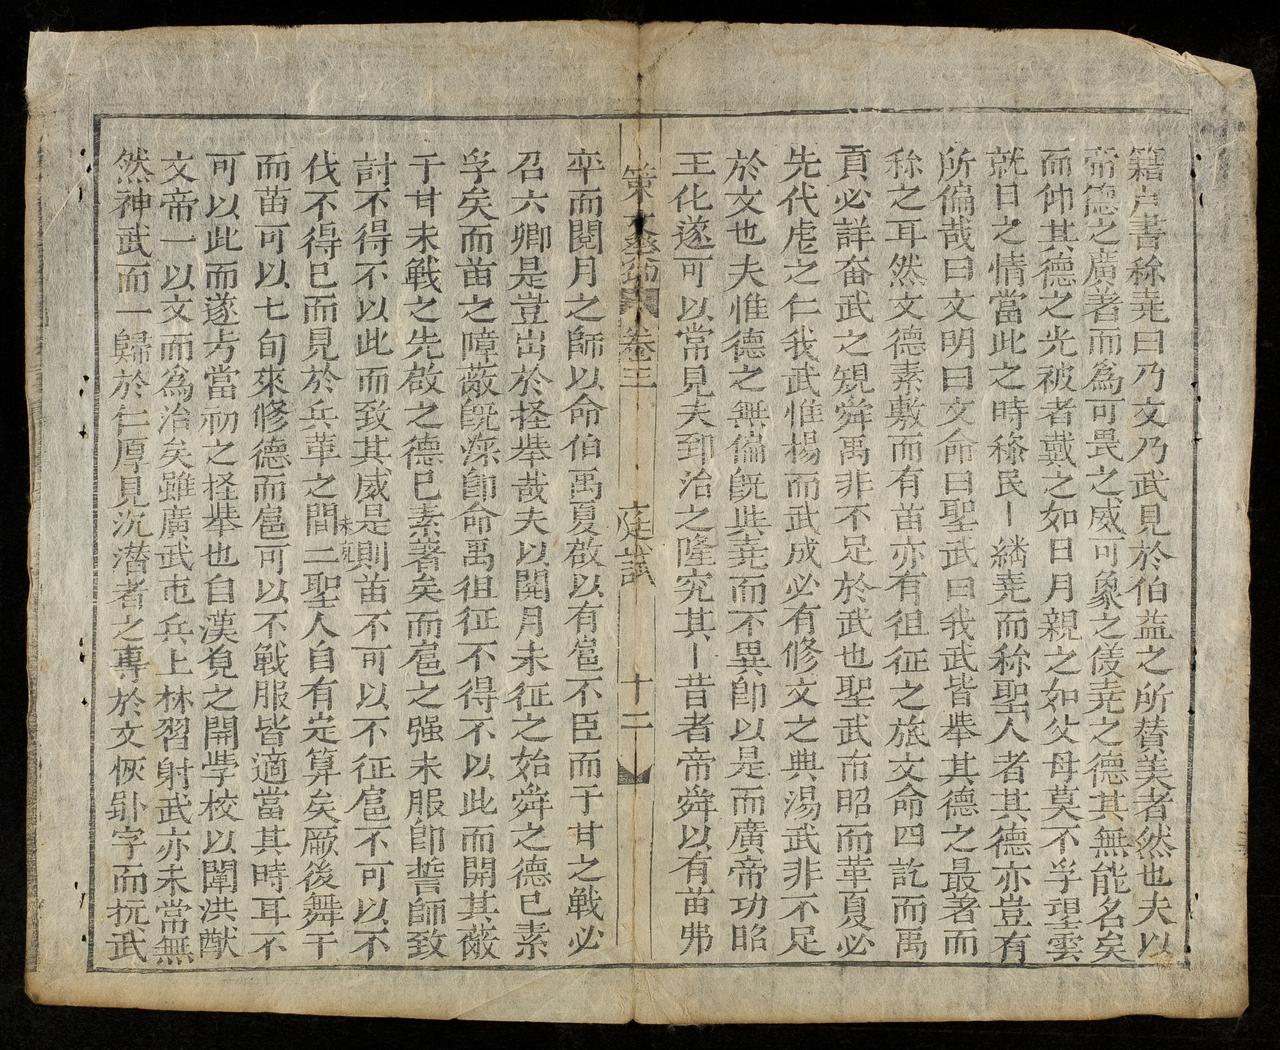 籍户書稱尭曰乃文乃武見於伯益之所賛美者然也夫以
帝德之廣著而為可畏之威可象之儀尭之德其無能名矣
而仰其德之光被者戴之如日月親之如父母莫不孚望雲
就日之情當此之時 民 尭而称聖人者其德亦豈有
所偏哉曰文明曰文命曰聖武曰我武皆舉其德之最著而
称之耳然文德素敷而有苗亦有徂征之旅文命四訖而禹
貢必詳奋武之䂓舜禹非不足於武也聖武布昭而革夏必
先代虐之仁我武惟揚而武成必有修文之典湯武非不足
於文也夫惟德之無偏既與尭而不異即以是而廣帝功昭
王化遂可以常見夫郅治之隆究其 昔者帝舜以有苗弗
策文 卷三 庭試 十二
卒而閱月之師以命伯禹夏啟以有扈不臣而于甘之戰必
召六卿是豈出於輕舉哉夫以開月未征之始舜之德已素
孚矣而苗之障蔽既深即命禹徂征不得不以此而開其蔽
于甘未戰之先啟之德已素著矣而扈之强未服即誓師致
討不得不以此而致其威是則苗不可以不征扈不可以不
伐不得已而見於兵革之間二聖人自有定算矣厥後舞干
而苗可以七旬來修德而扈可以不戰服皆適當其時耳不
可以此而遂 當初之輕舉也自漢 之開學校以闡洪猷
文帝一以文而為治矣雖廣武屯兵上林習射武亦未常無
然神武而一歸於仁厚見沉潛者之專於文恢 字而抚武